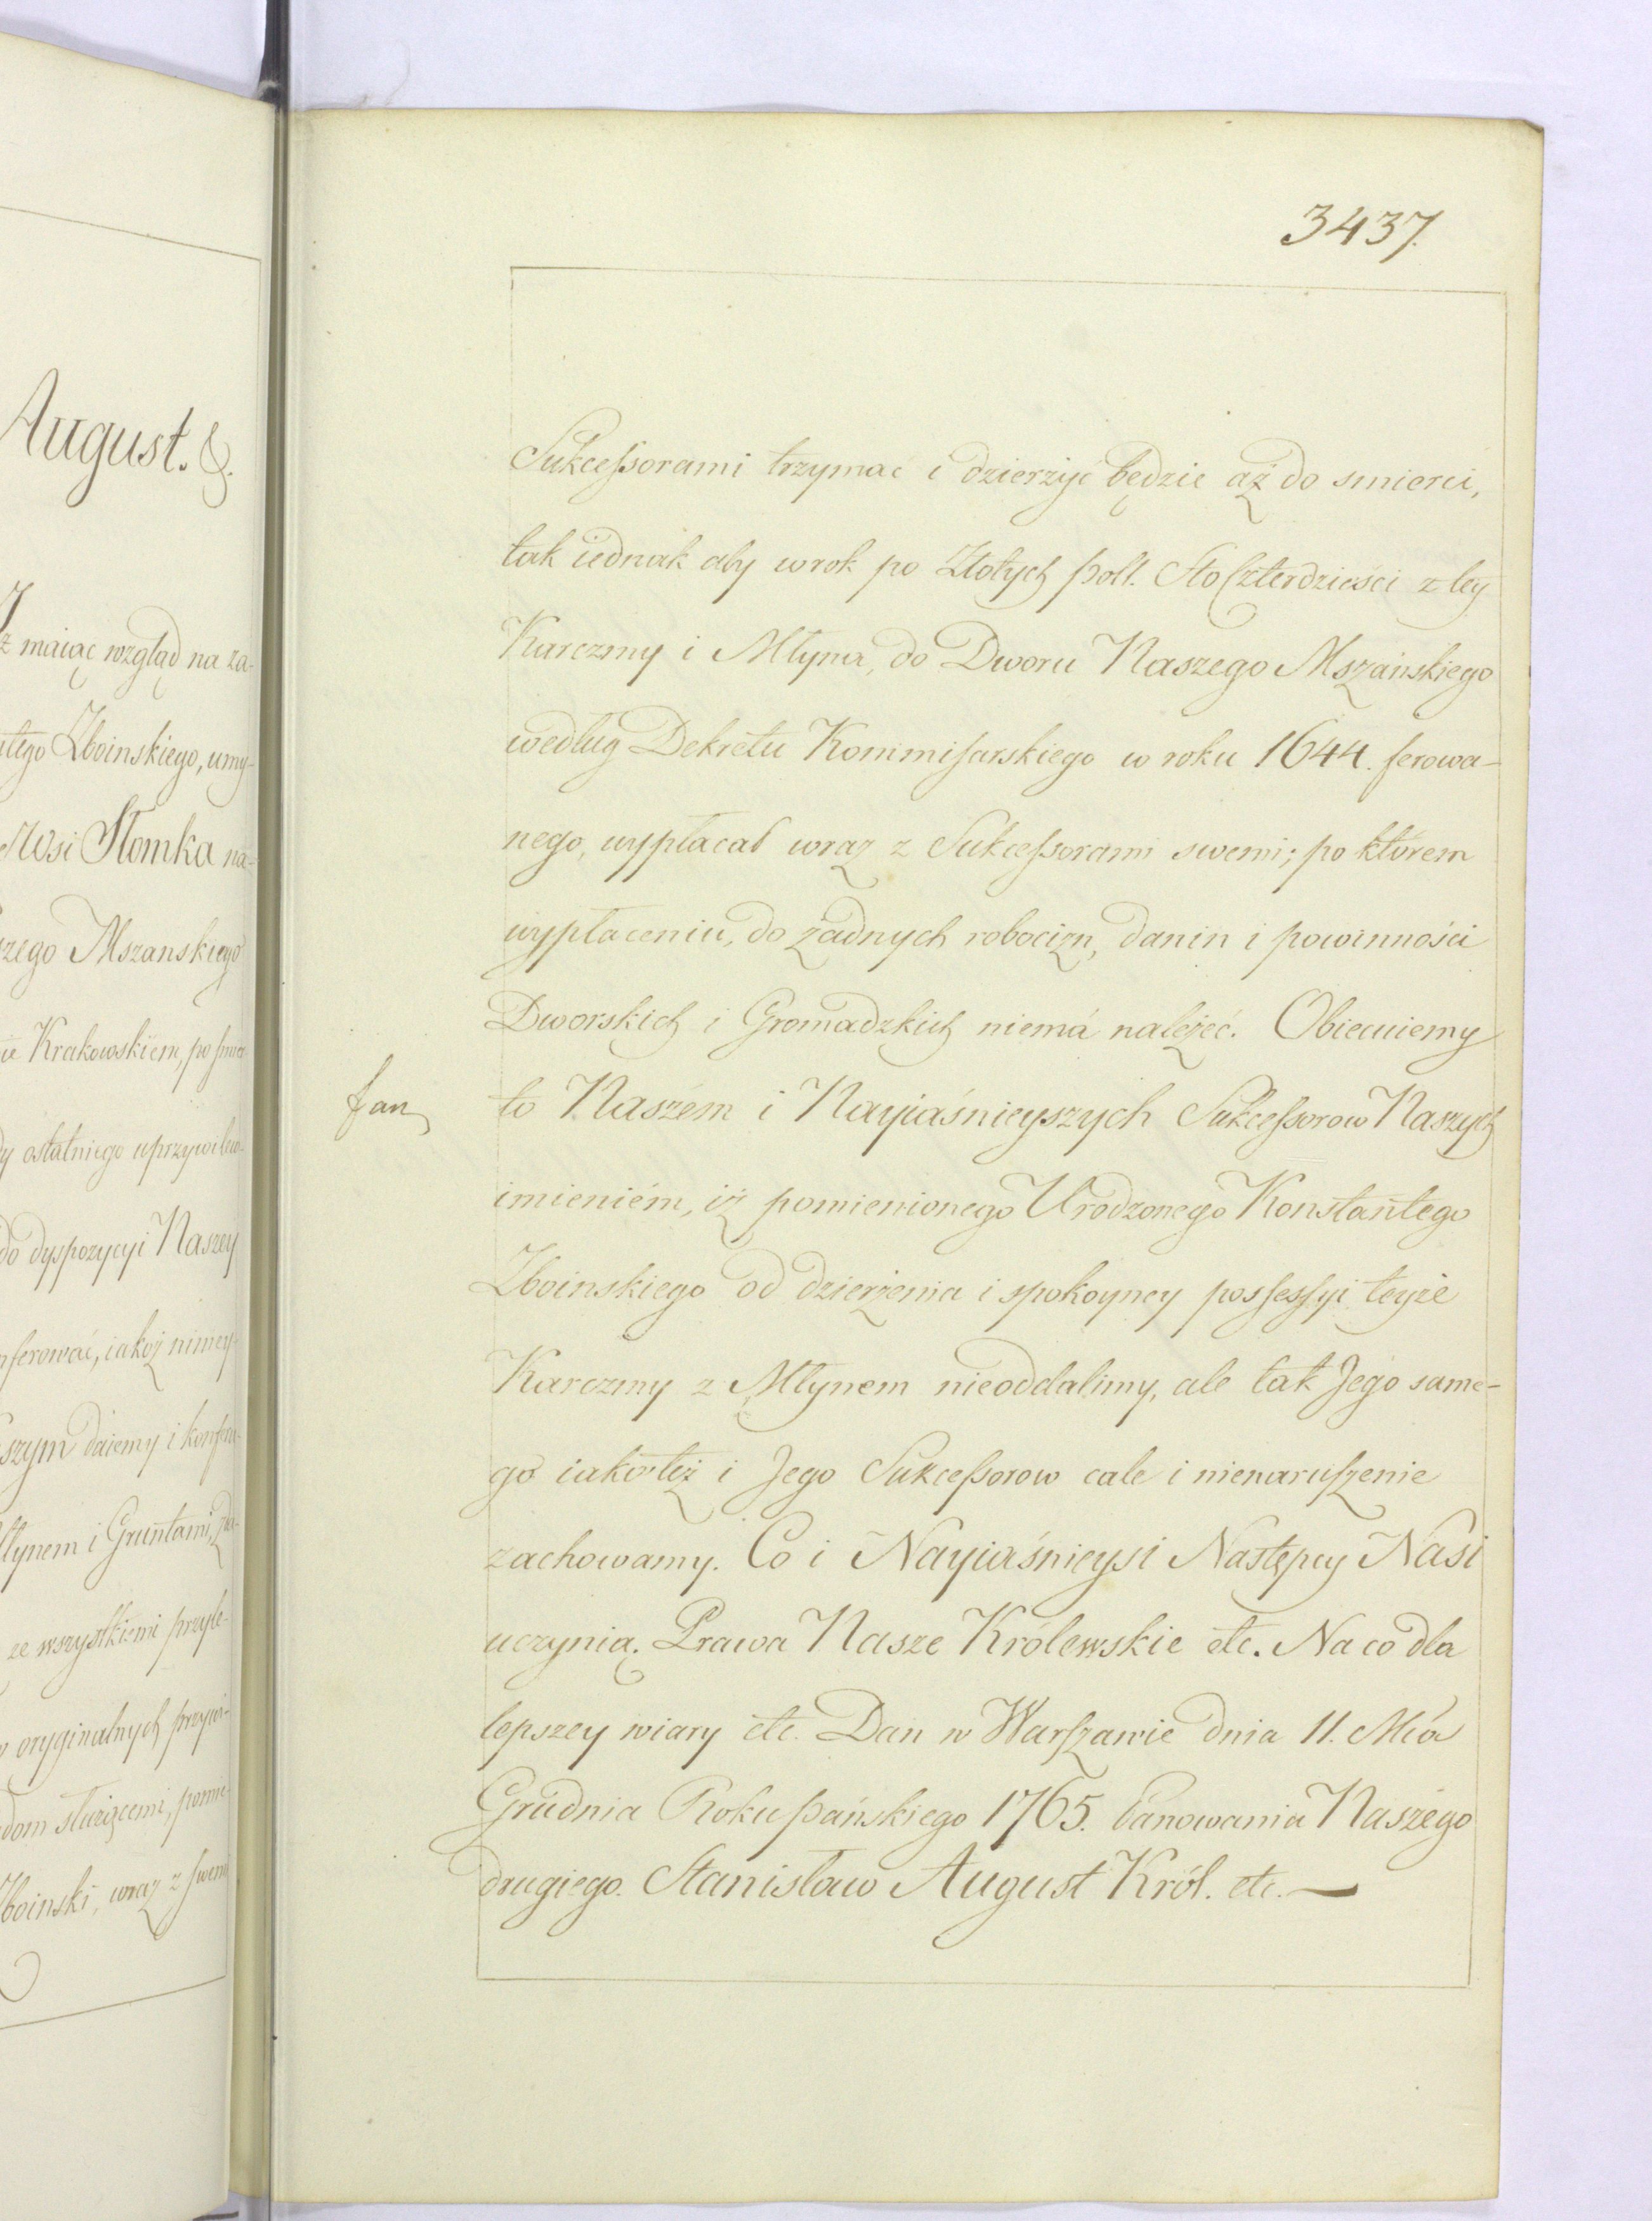 August. &.
ż maiąc wzgląd na za-
Zboinskiego, umy-
Wsi Słomka na-
szego Mszanskiego
ie Krakowskiem, po smier
ostatniego uprzywileio-
do dyspozycyi Naszey
nferować, iakoż niniey-
szym daiemy i konfero-
łynem i Gruntami, zda-
ze wszystkiemi przyle-
oryginalnych przywi-
dom służącemi, pomie-
boinski, wraz z swemi
3437.
Sukcessorami trzymać i dzierżyć będzie aż do smierci,
tak iednak aby w rok po Złotych poll. Sto Czterdzieści z tey
Karczmy i Młyna, do Dworu Naszego Mszańskiego
według Dekretu Kommisarskiego w roku 1644. ferowa-
nego, wypłacał wraz z Sukcessorami swemi; po którem
wypłaceniu, do żadnych robocizn, danin i powinności
Dworskich i Gromadzkich niemá należeć. Obiecuiemy
to Naszém i Nayiaśnieyszych Sukcessorow Naszych
imieniém, iż pomienionego Urodzonego Konstantego
Zboinskiego od dzierżenia i spokoyney possessyi teyże
Karczmy z Młynem nieoddalimy, ale tak Jego same-
go iakoteż i Jego Sukcessorow cale i nienaruszenie
zachowamy. Co i Nayiaśnieysi Następcy Nasi
uczynią. Prawa Nasze Królewskie etc. Na co dla
lepszey wiary etc. Dan w Warszawie dnia 11. Mca
Grudnia Roku Pańskiego 1765. Panowania Naszego
drugiego. Stanisław August Król. etc. —